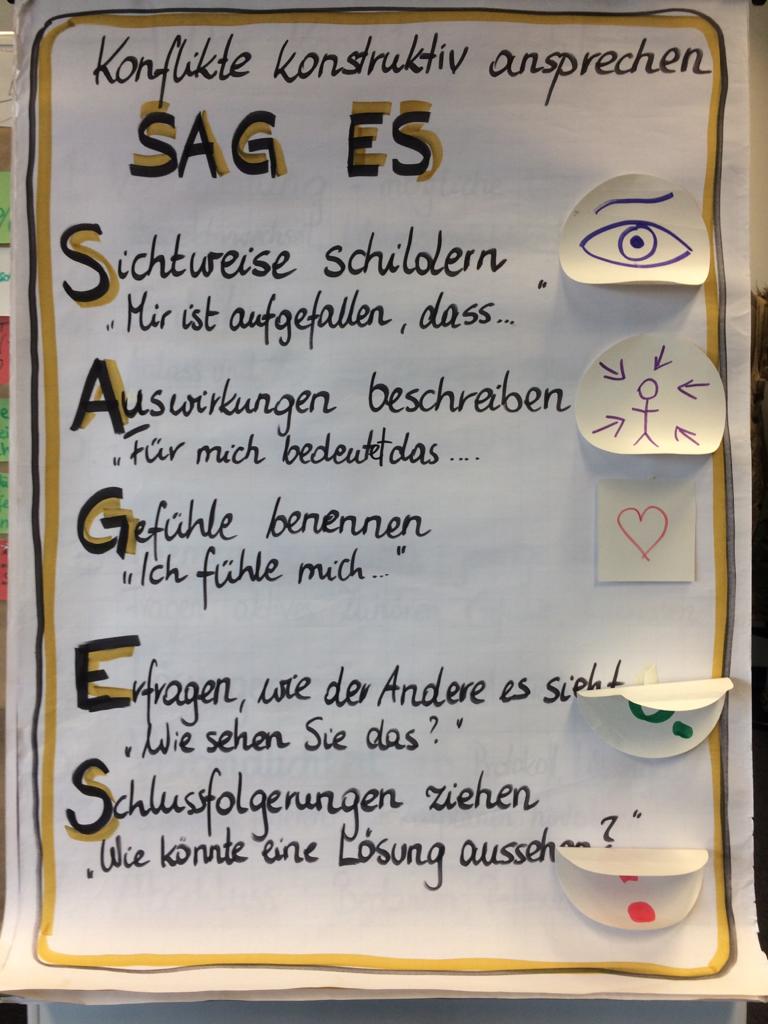 Konflikte konstruktiv ansprechen
SAG ES
Sichtweise schildern
„Mir ist aufgefallen, dass... "
Auswirkungen beschreiben
„Für mich bedeutet das ....
Gefühle benennen
„Ich fühle mich..."
Erfragen, wie der Andere es sieht
„Wie sehen Sie das?"
Schlussfolgerungen ziehen
„Wie könnte eine Lösung aussehen?"